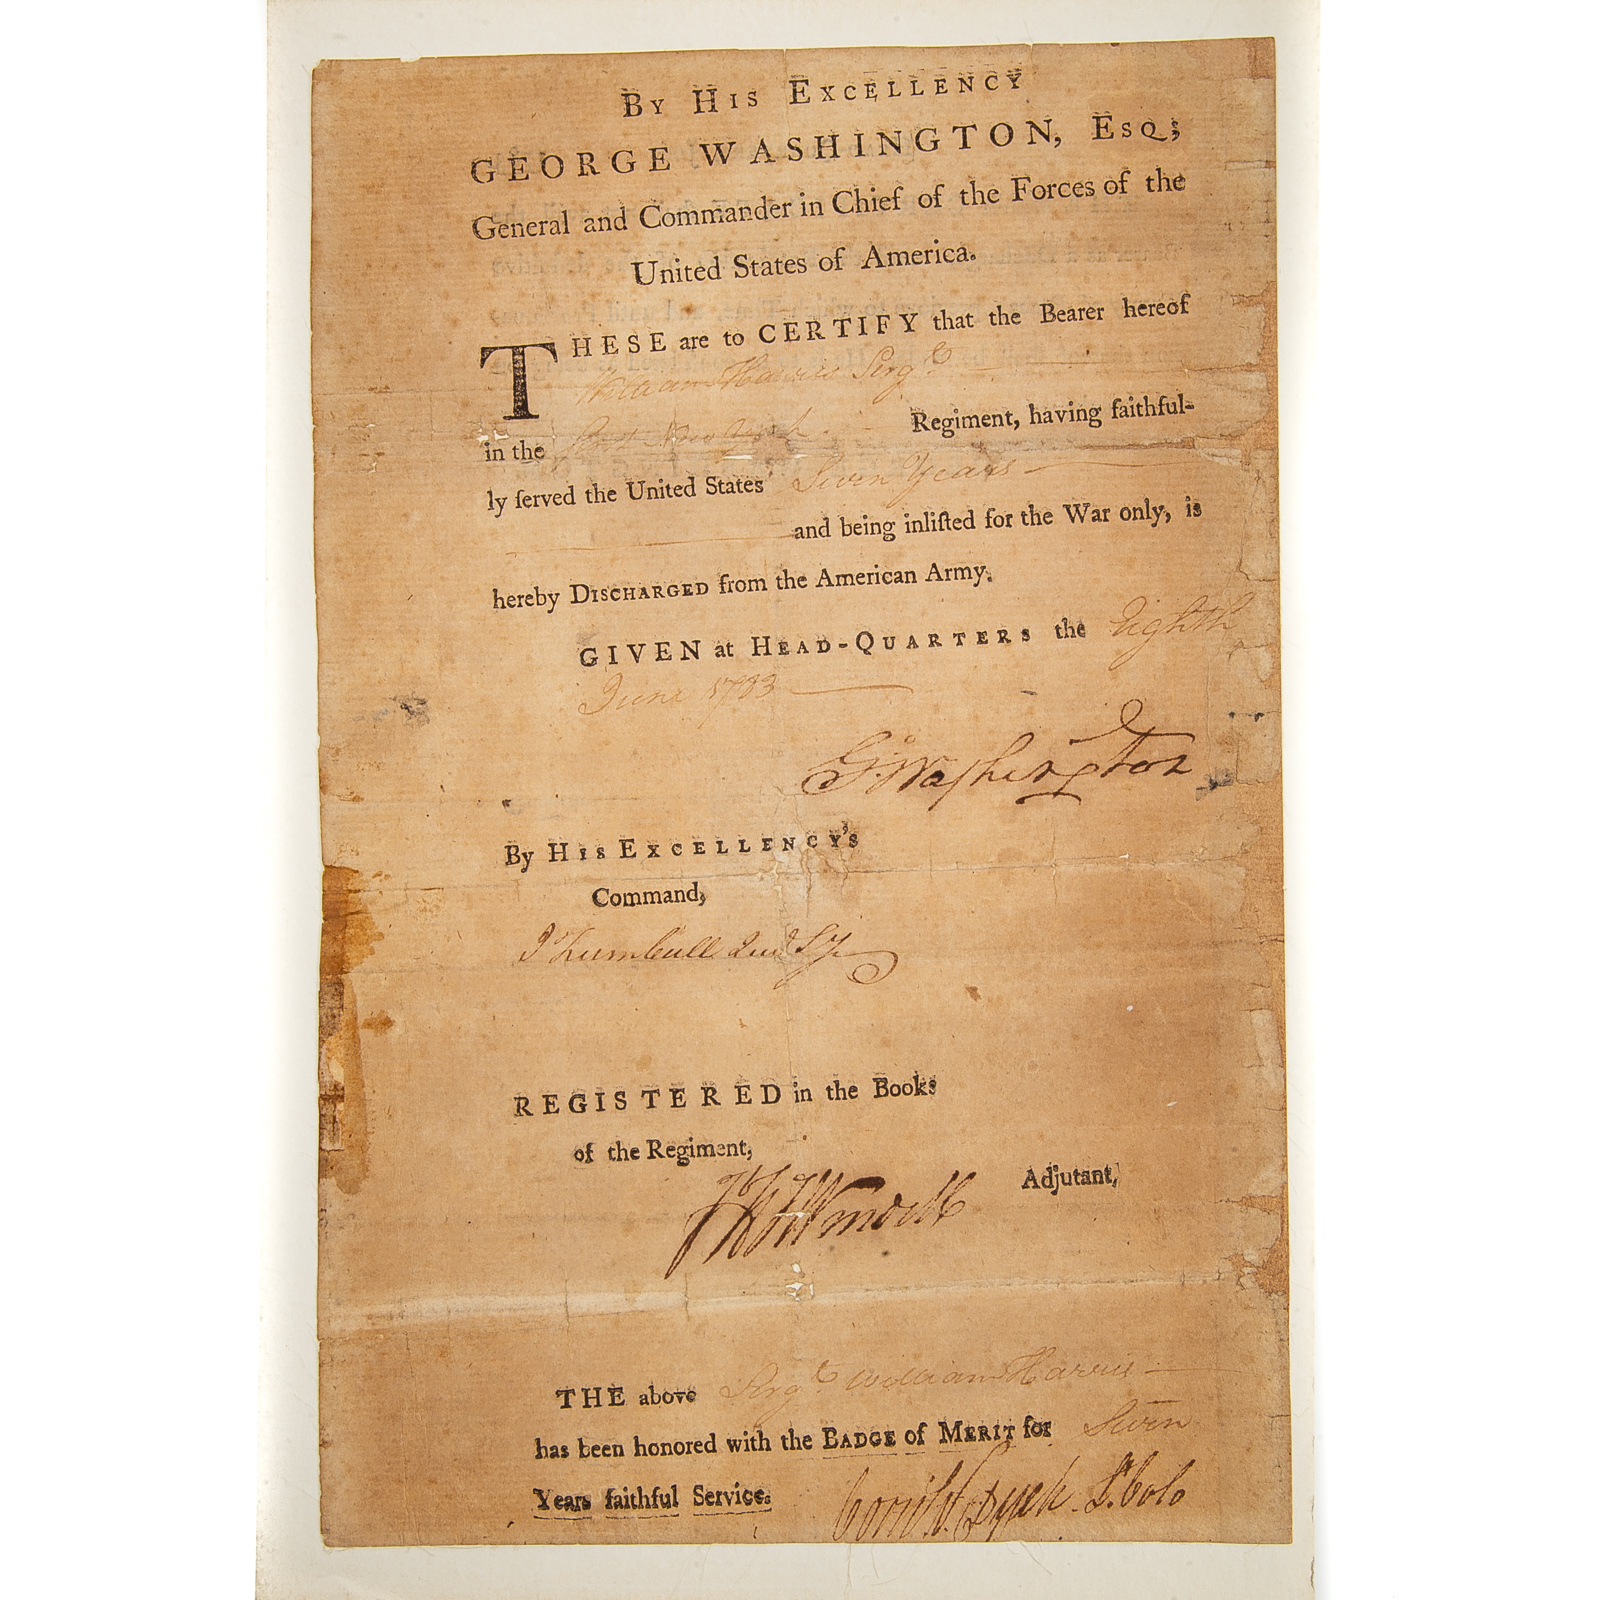 By His Excellency
GEORGE WASHINGTON, Esq;
General and Commander in Chief of the Forces of the
United States of America.
THESE are to CERTIFY that the Bearer hereof
William Harris Sergt
in the First New York Regiment, having faithful-
ly ſerved the United States Seven Years
and being inliſted for the War only, is
hereby Discharged from the American Army.
GIVEN at Head-Quarters the Eighth
June 1783
Go: Washington
By His Excellency's
Command,
J Trumbull Jun Sy
REGISTERED in the Books
of the Regiment,
Adjutant,
THE above Sergt William Harris
has been honored with the Badge of Merit for Seven
Years faithful Service.